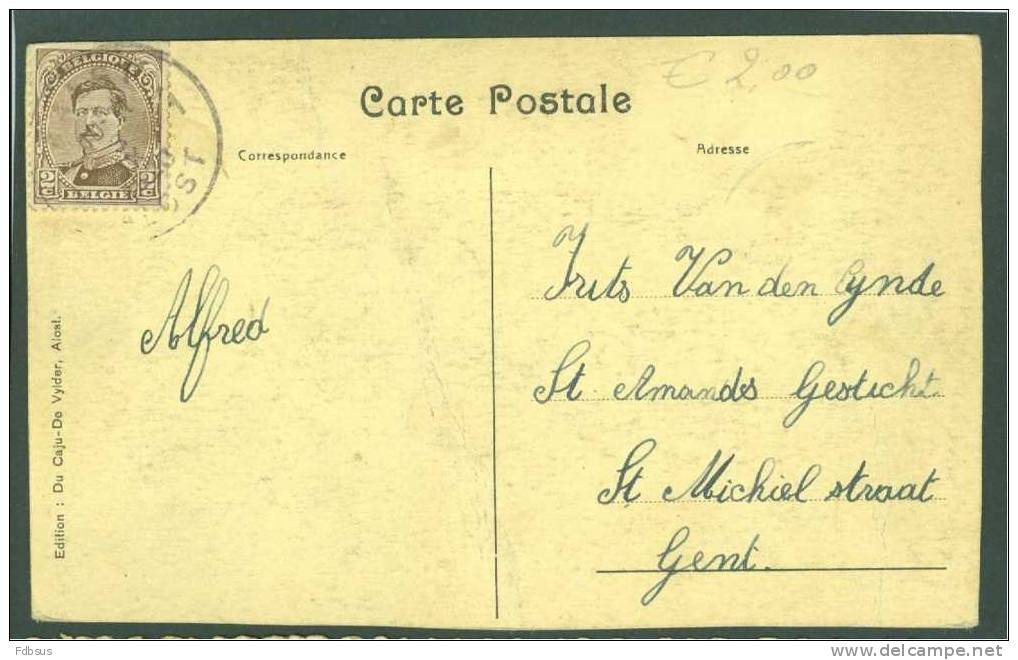 BELGIQUE
2c 2c
BELGIE
€ 2,00
Carte Postale
Correspondance
Adresse
Alfred
Frits Van den Eynde
St. Amands Gesticht
St Michiel straat
Gent.
Edition : Du Caju-De Vylder, Alost.
Fdbsus